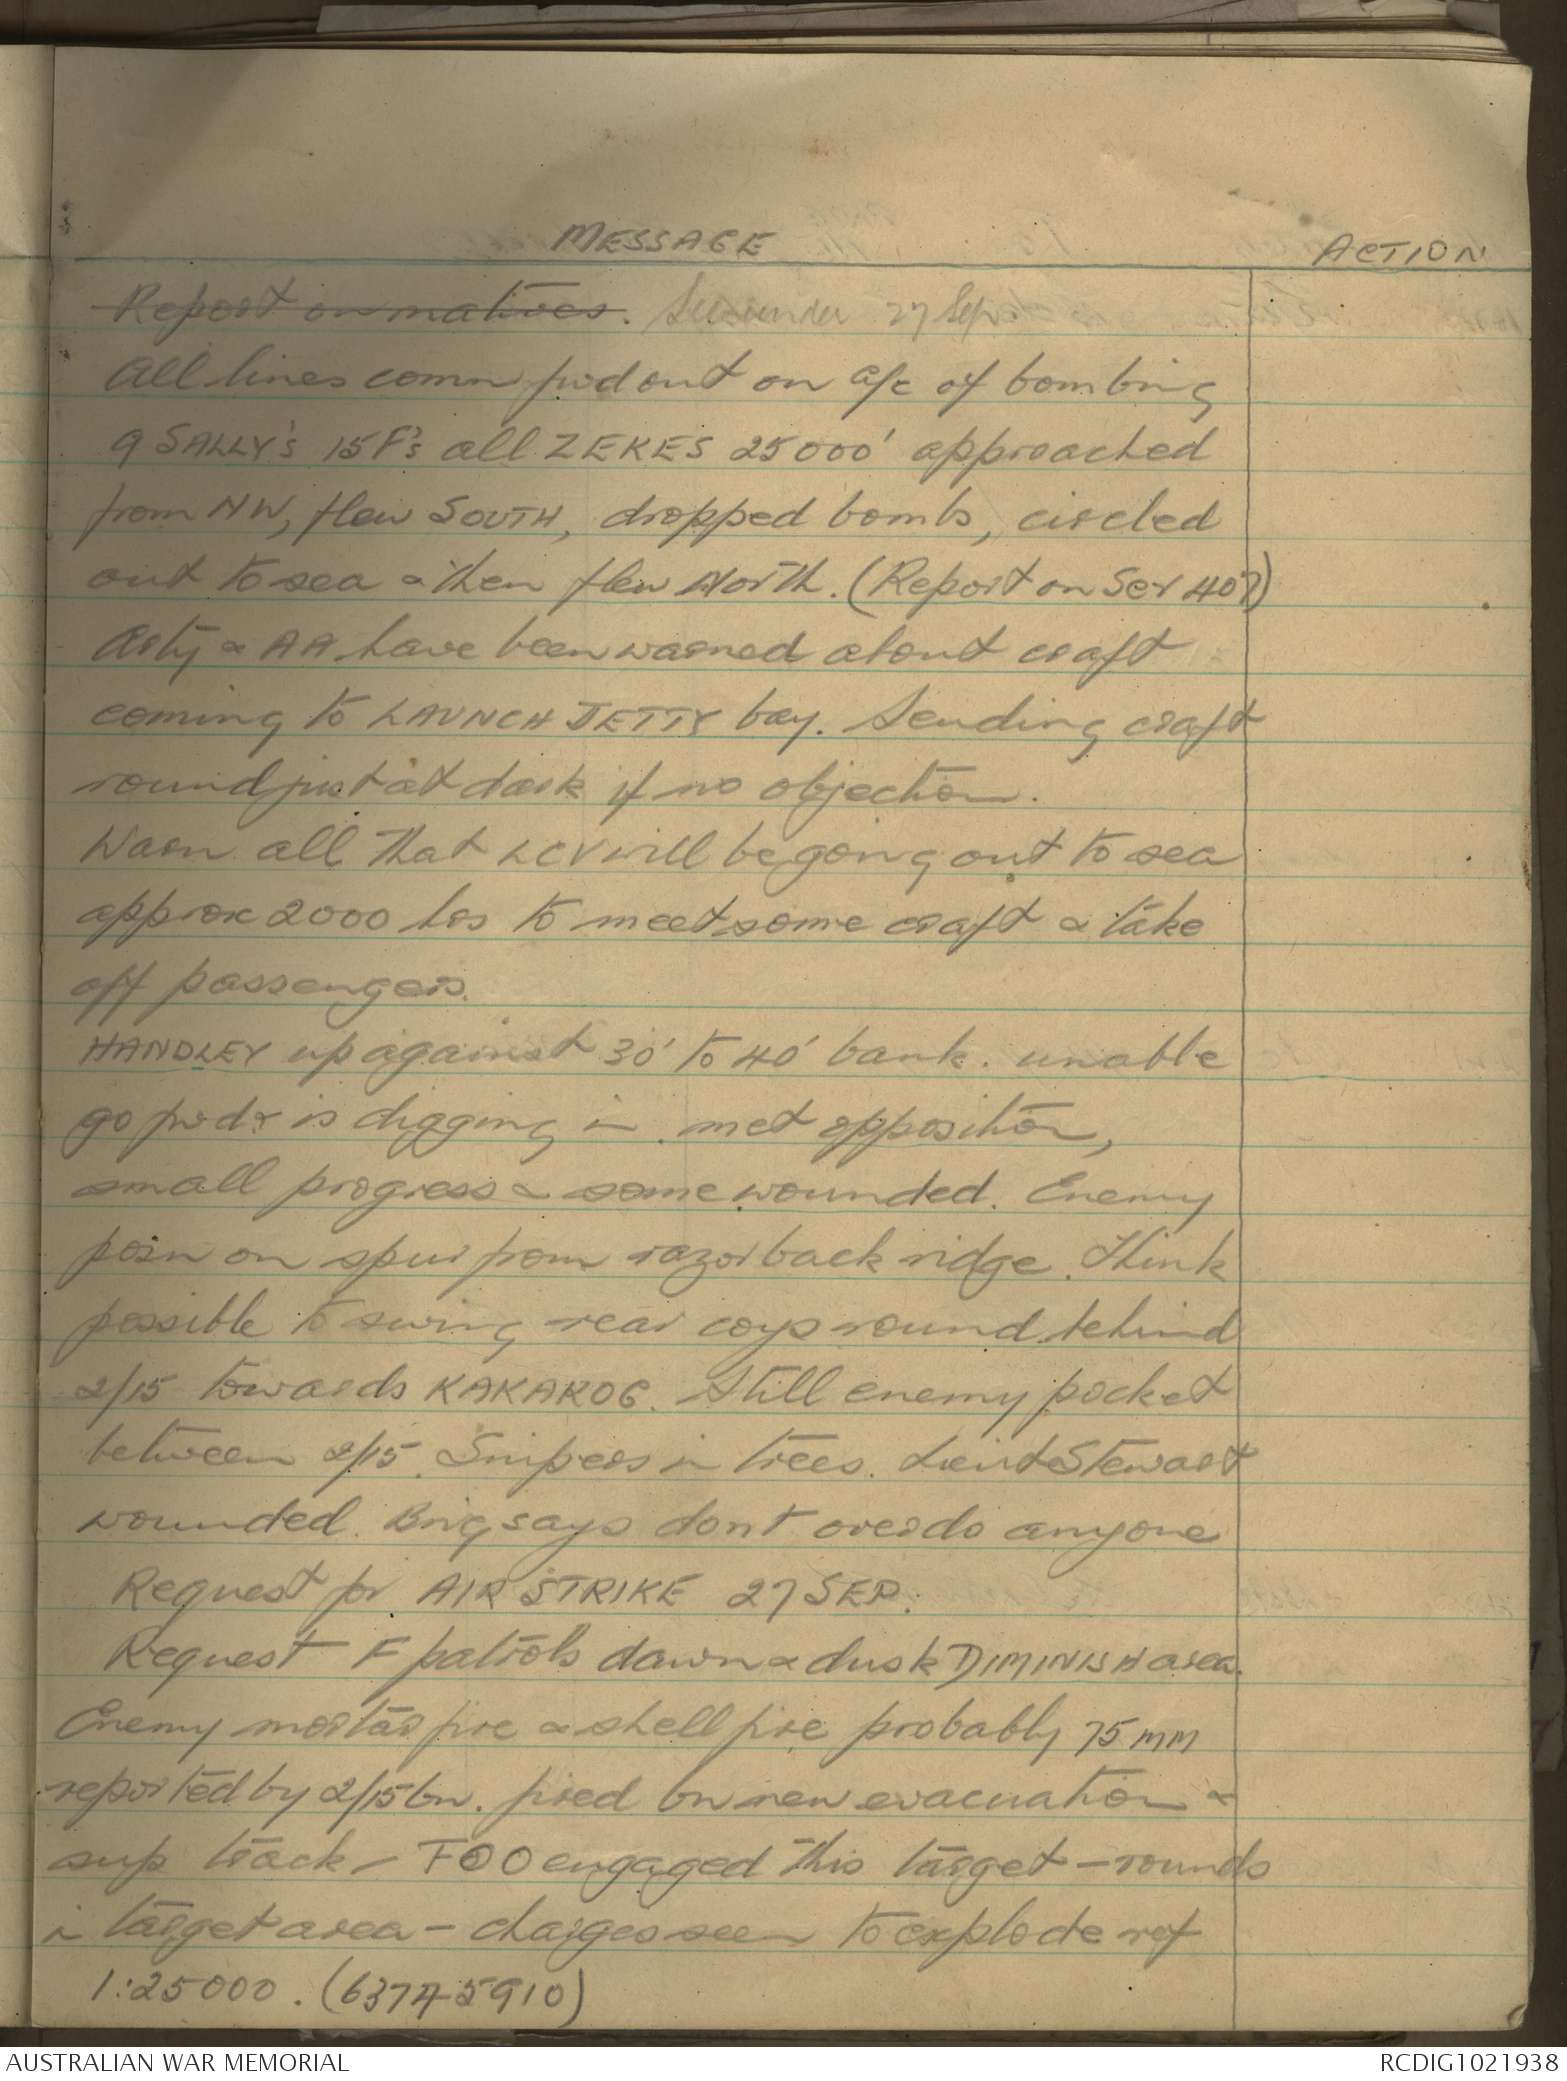 MESSAGE
ACTION
Report on natives. See under 27 Sep
All lines comn fwd out on a/c of bombing
9 SALLY's 15 F's all ZEKES 25000' approached
from NW, flew SOUTH, dropped bombs, circled
out to sea & then flew North. (Report on Ser 407)
Arty & AA have been warned about craft
coming to LAUNCH JETTY bay. Sending craft
round just at dark if no objection.
Warn all that LCV will be going out to sea
approx 2000 hrs to meet some craft & take
off passengers.
HANDLEY up against 30' to 40' bank. unable
go fwd & is digging in. met opposition,
small progress & some wounded. Enemy
posn on spur from razorback ridge. Think
possible to swing rear coys round behind
2/15 towards KAKAKOG. Still enemy pocket
between 2/15. Snipers in trees. Lieut Stewart
wounded. Brig says dont overdo anyone
Request for AIR STRIKE 27 SEP.
Request F patrols dawn & dusk DIMINISH area.
Enemy mortar fire & shell fire probably 75 MM
reported by 2/15 bn. fired on new evacuation &
sup track - FOO engaged this target - rounds
in target area - charges seen to explode ref
1:25000. (6374 5910)
AUSTRALIAN WAR MEMORIAL
RCDIG1021938